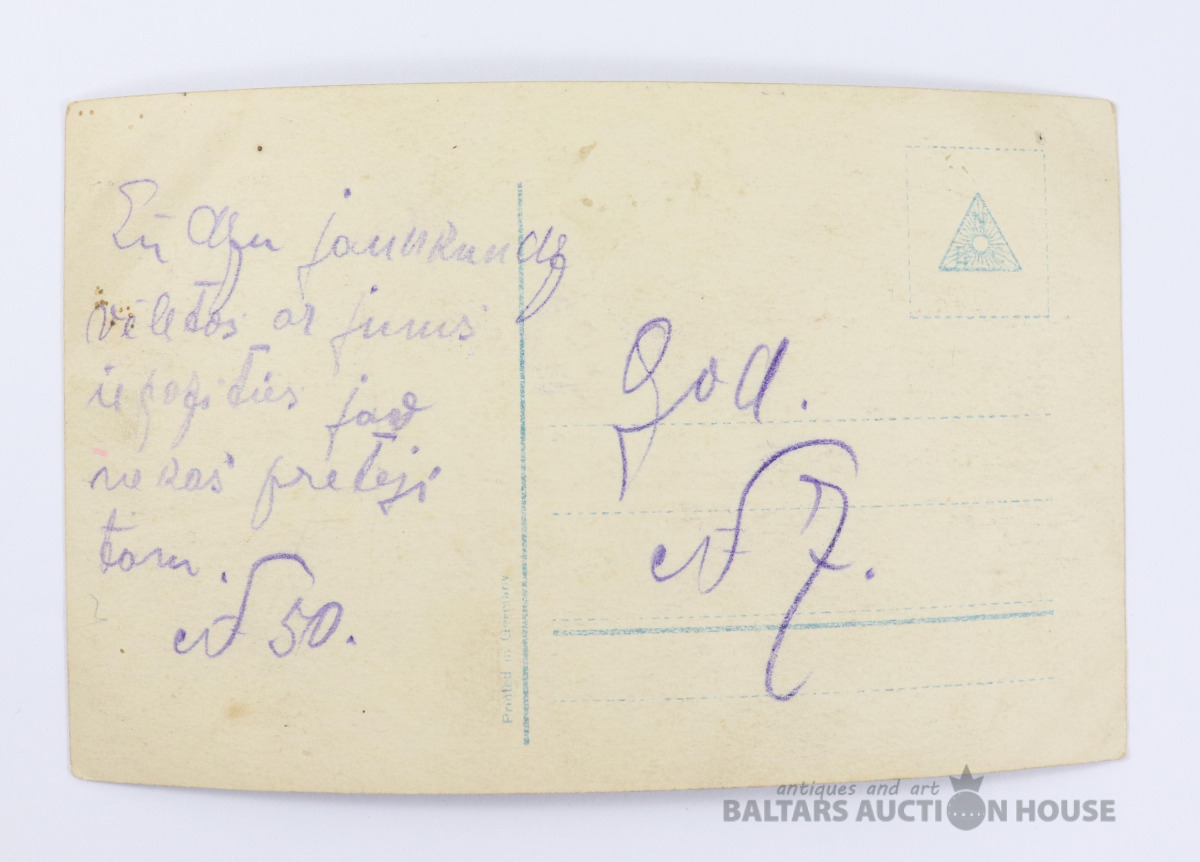 jaunkundz
vēlētos ar jums
iepazīties jaw
nekas pretējs
tam.
№ 50.
God.
№ 7.
Printed in Germany
antiques and art
BALTARS AUCTION HOUSE